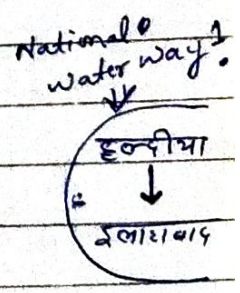 National
water way 1
हल्दीया
↓
ईलाहाबाद